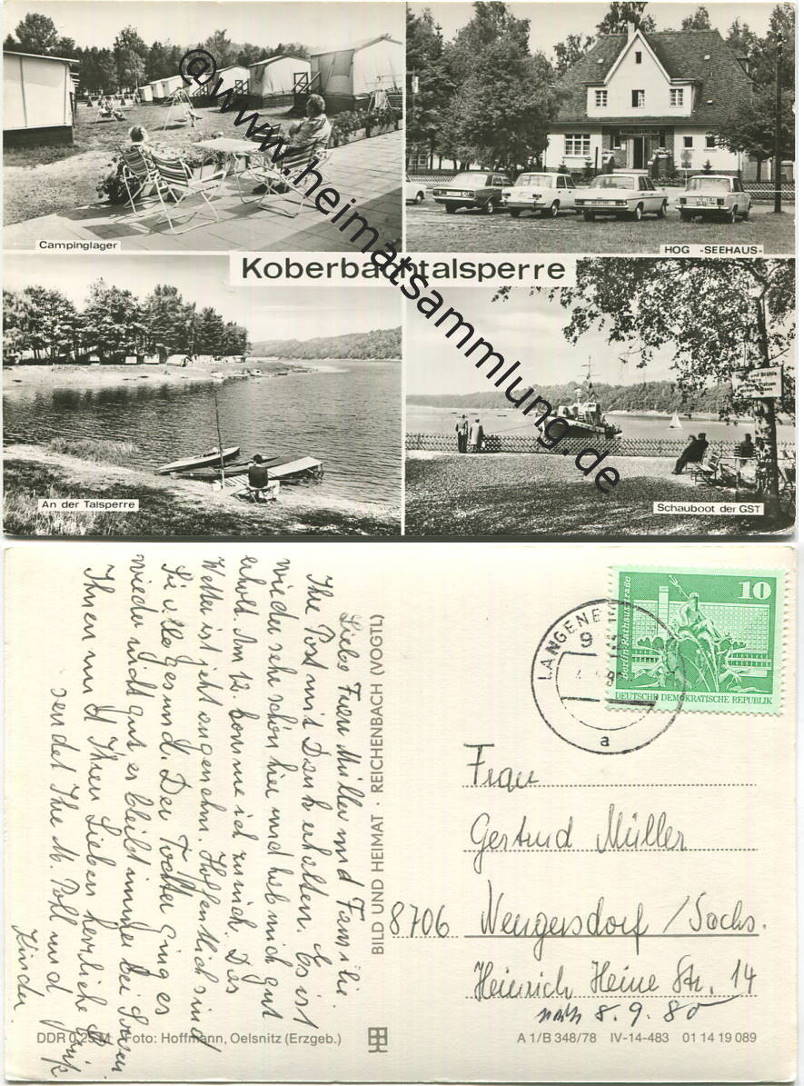 Campinglager
HOG -SEEHAUS-
Koberbachtalsperre
An der Talsperre
Schauboot der GST
@www.heimatsammlung.de
Liebe Frau Müller und Familie.
Ihre Post mit Dank erhalten. Es ist
wieder sehr schön hier und hab mich gut
erholt. Am 12. komme ich zurück. Das
Wetter ist jetzt angenehm. Hoffentlich sind
Sie alle gesund. Der Tochter ging es
wieder nicht gut es bleibt immer bei Sorgen.
Ihnen und Ihren Lieben herzliche Grüße
sendet Ihre M. Poll und
Kinder.
BILD UND HEIMAT · REICHENBACH (VOGTL)
DDR 0,25 M Foto: Hoffmann, Oelsnitz (Erzgeb.)
LANGENE
9
a
10
Berlin-Rathausstraße
DEUTSCHE DEMOKRATISCHE REPUBLIK
Frau
Gertrud Müller
8706 Neugersdorf / Sachs.
Heinrich Heine Str. 14
8.9.80
A 1/B 348/78 IV-14-483 01 14 19 089